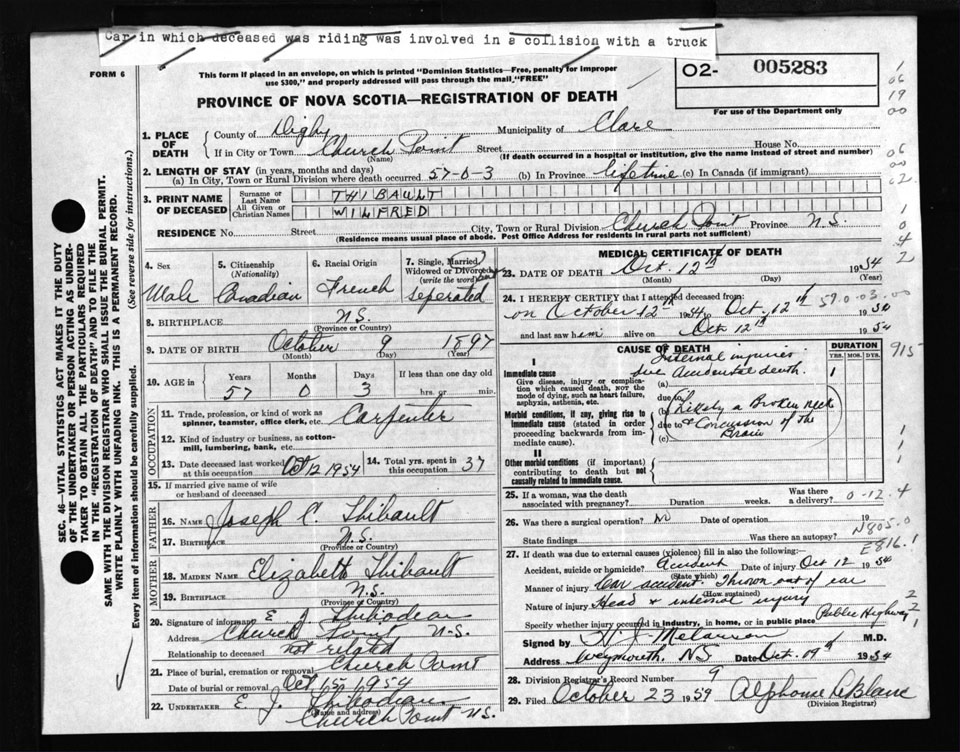 Car in which deceased was riding was involved in a collision with a truck
FORM 6
This form if placed in an envelope, on which is printed "Dominion Statistics—Free, penalty for improper
use $300," and properly addressed will pass through the mail, "FREE"
02- 005283
For use of the Department only
PROVINCE OF NOVA SCOTIA—REGISTRATION OF DEATH
1. PLACE OF DEATH
County of Digby Municipality of Clare
If in City or Town Church Point Street House No.
(Name) (If death occurred in a hospital or institution, give the name instead of street and number)
2. LENGTH OF STAY (in years, months and days)
(a) In City, Town or Rural Division where death occurred 57-0-3 (b) In Province lifetime (c) In Canada (if immigrant)
3. PRINT NAME OF DECEASED
Surname or Last Name THIBAULT
All Given or Christian Names WILFRED
RESIDENCE No. Street City, Town or Rural Division Church Point Province N.S.
(Residence means usual place of abode. Post Office Address for residents in rural parts not sufficient)
4. Sex Male
5. Citizenship (Nationality) Canadian
6. Racial Origin French
7. Single, Married, Widowed or Divorced (write the word) seperated
8. BIRTHPLACE N.S.
(Province or Country)
9. DATE OF BIRTH October 9 1897
(Month) (Day) (Year)
10. AGE in Years Months Days If less than one day old
57 0 3 hrs. or min.
OCCUPATION
11. Trade, profession, or kind of work as
spinner, teamster, office clerk, etc. Carpenter
12. Kind of industry or business, as cotton-
mill, lumbering, bank, etc.
13. Date deceased last worked at this occupation Oct 12 1954
14. Total yrs. spent in this occupation 37
15. If married give name of wife
or husband of deceased
FATHER
16. NAME Joseph C. Thibault
17. BIRTHPLACE N.S.
(Province or Country)
MOTHER
18. MAIDEN NAME Elizabeth Thibault
19. BIRTHPLACE N.S.
(Province or Country)
20. Signature of informant E. J. Thibodeau
Address Church Point N.S.
Relationship to deceased not related
21. Place of burial, cremation or removal Church Point
Date of burial or removal Oct 15 1954
22. UNDERTAKER E. J. Thibodeau
(Name and address)
Church Point N.S.
MEDICAL CERTIFICATE OF DEATH
23. DATE OF DEATH Oct. 12th 1954
(Month) (Day) (Year)
24. I HEREBY CERTIFY that I attended deceased from:
on October 12th 1954 to Oct. 12th 1954
and last saw him alive on Oct 12th 1954
57.0.03.00
CAUSE OF DEATH
DURATION
YRS. MOS. DYS.
I
Immediate cause
Give disease, injury or complica-
tion which caused death, not the
mode of dying, such as heart failure,
asphyxia, asthenia, etc.
Internal injuries
due Accidental death.
(a)
due to
Morbid conditions, if any, giving rise to
immediate cause (stated in order
proceeding backwards from im-
mediate cause).
(b) Likely a Broken neck
due to & Concussion of the
(c) Brain
II
Other morbid conditions (if important)
contributing to death but not
causally related to immediate cause.
915
25. If a woman, was the death
associated with pregnancy? Duration weeks. Was there a delivery?
0-12.4
26. Was there a surgical operation? No Date of operation 19
State findings Was there an autopsy?
N805.0
E816.1
27. If death was due to external causes (violence) fill in also the following:
Accident, suicide or homicide? Accident Date of injury Oct 12 1954
(State which)
Manner of injury Car accident. Thrown out of car
(How sustained)
Nature of injury Head & internal injury
Specify whether injury occurred in industry, in home, or in public place Public Highway
Signed by M.D.
Address Weymouth, NS Date Oct. 19th 1954
28. Division Registrar's Record Number 9
29. Filed October 23 1959 Alphonse LeBlanc
(Division Registrar)
SEC. 46—VITAL STATISTICS ACT MAKES IT THE DUTY
OF THE UNDERTAKER OR PERSON ACTING AS UNDER-
TAKER TO OBTAIN ALL THE PARTICULARS REQUIRED
IN THE "REGISTRATION OF DEATH" AND TO FILE THE
SAME WITH THE DIVISION REGISTRAR WHO SHALL ISSUE THE BURIAL PERMIT.
WRITE PLAINLY WITH UNFADING INK. THIS IS A PERMANENT RECORD.
Every item of information should be carefully supplied. (See reverse side for instructions.)